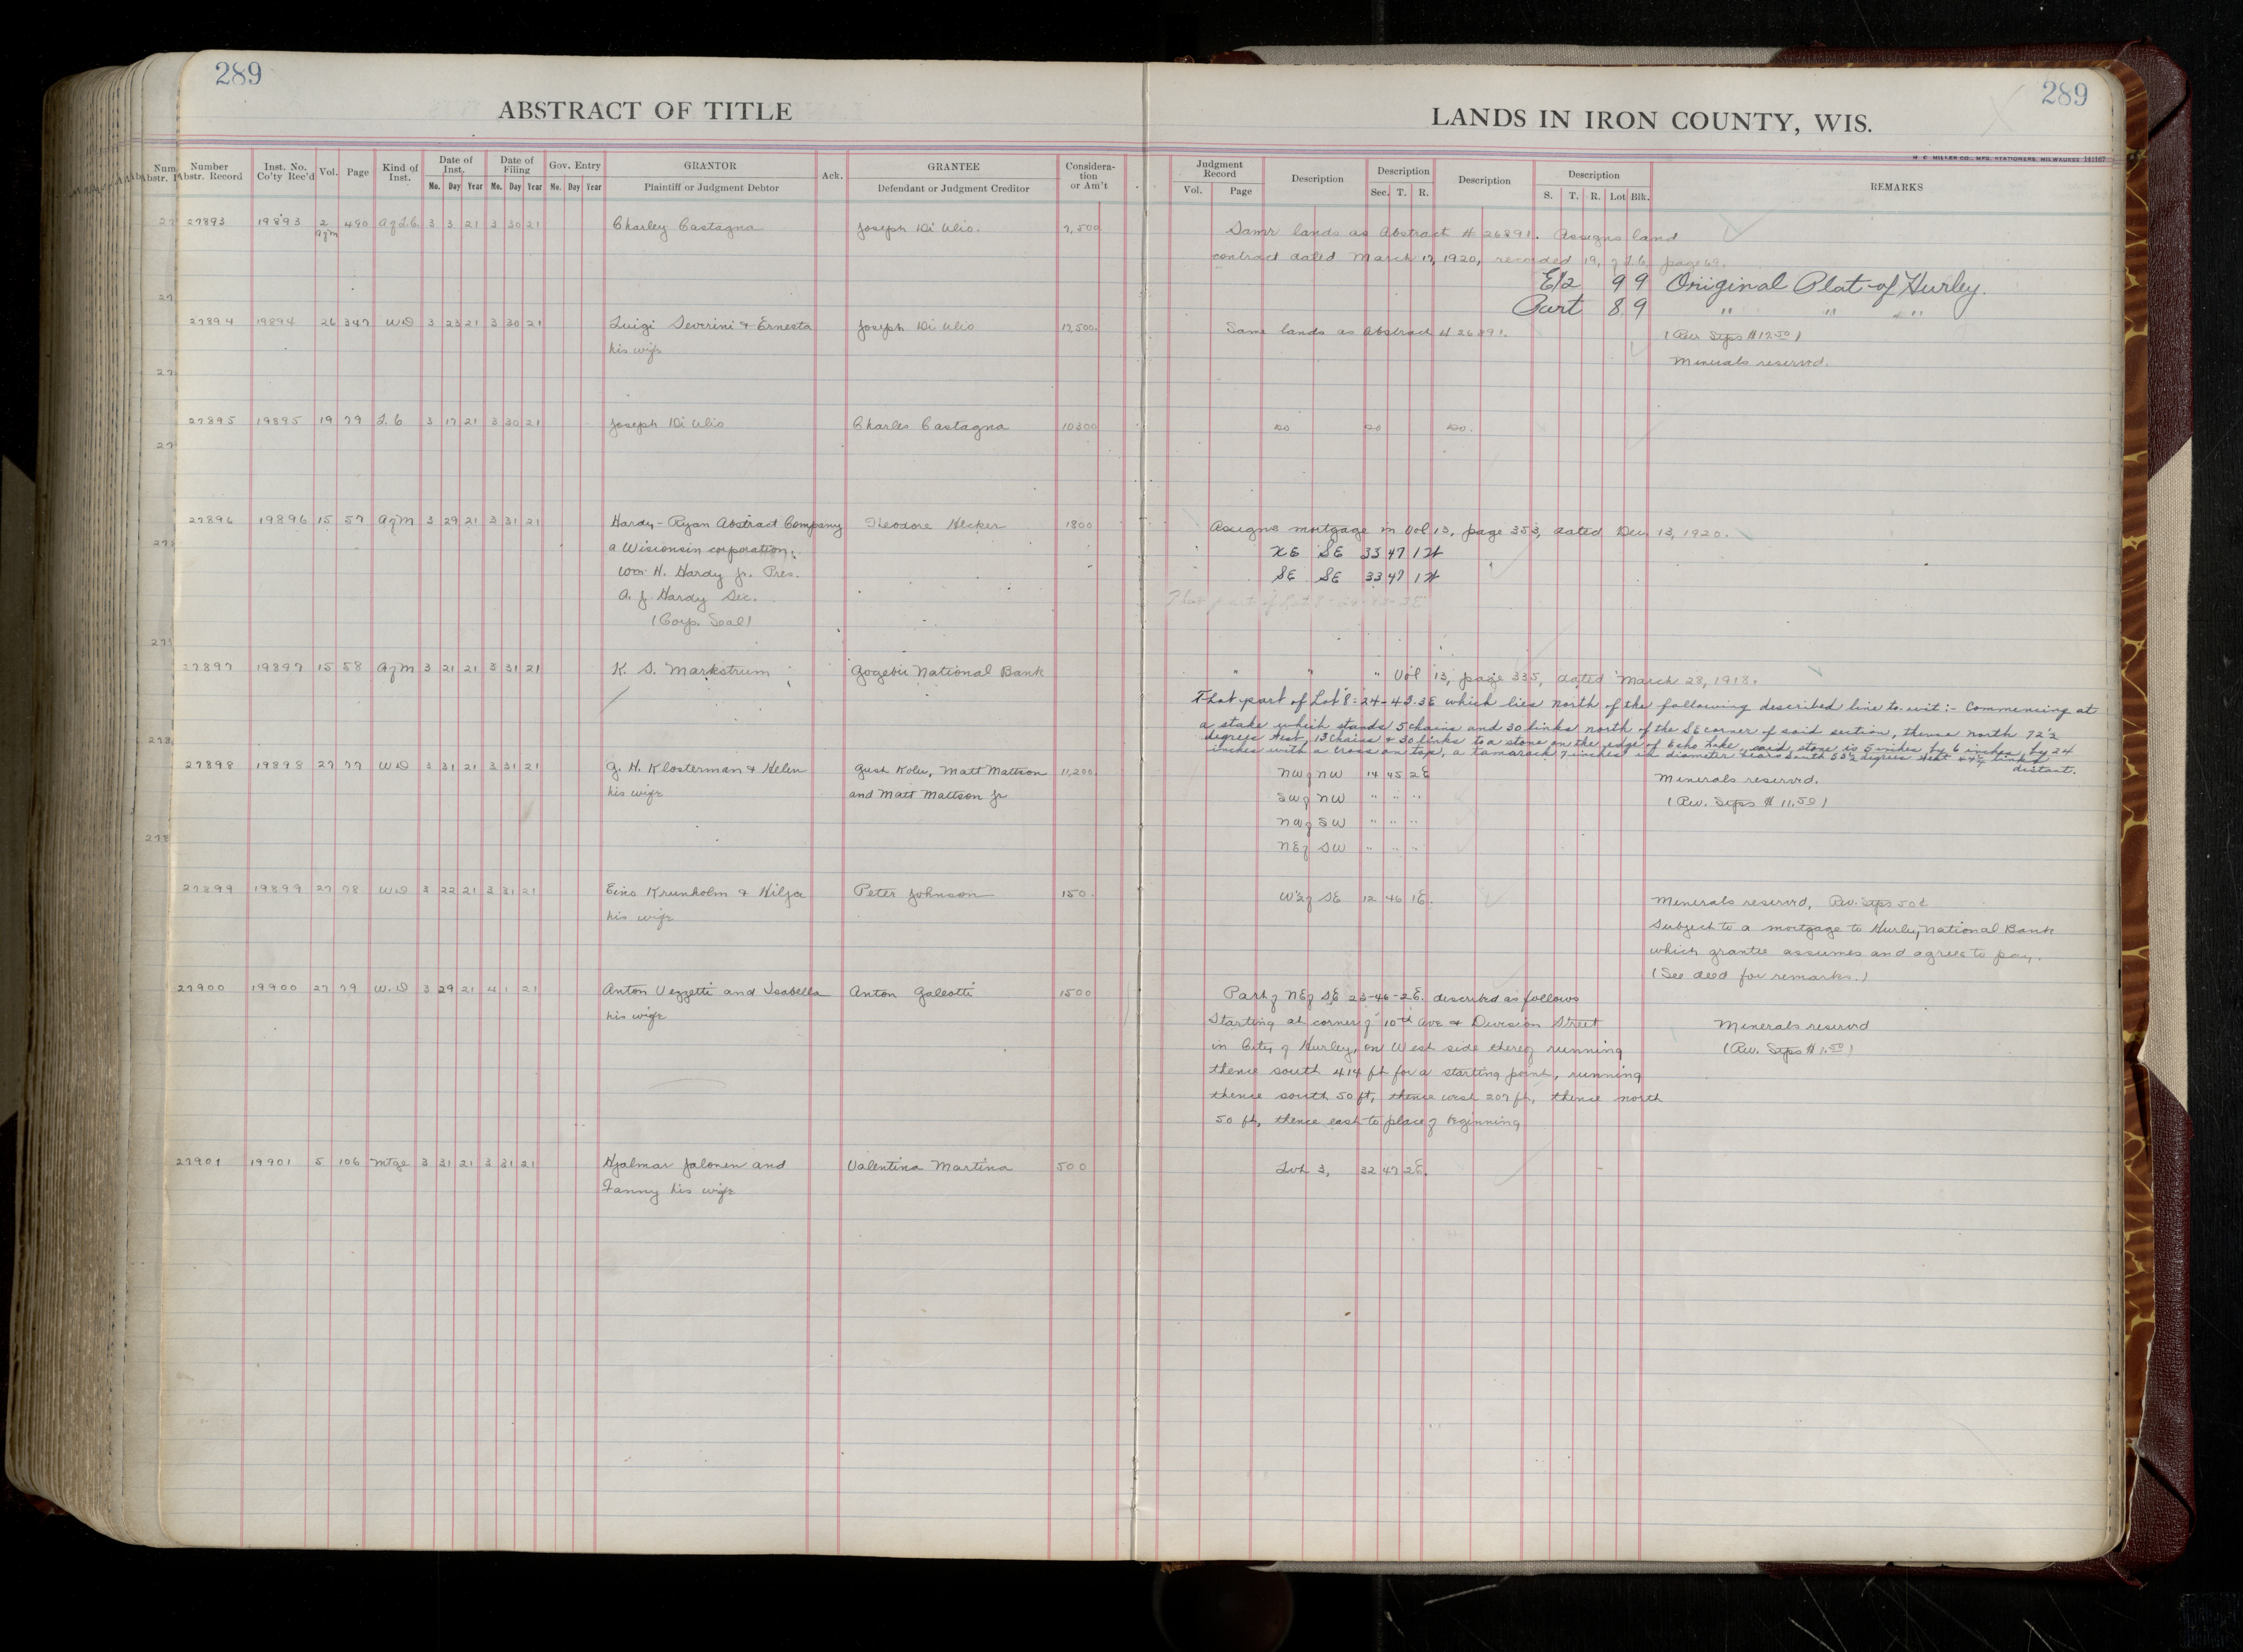 289
ABSTRACT OF TITLE
Number Abstr. Record Inst. No. Co'ty Rec'd Vol. Page Kind of Inst. Date of Inst. Date of Filing Gov. Entry GRANTOR Ack. GRANTEE Considera-tion or Am't
Mo. Day Year Mo. Day Year Mo. Day Year Plaintiff or Judgment Debtor Defendant or Judgment Creditor
27893 19893 2 490 3 3 21 3 30 21 Charley Castagna Joseph Di Ulio. 7,500
27894 19894 26 347 WD 3 23 21 3 30 21 Luigi Severini & Ernesta Joseph Di Ulio 17,500.
his wife
27895 19895 19 79 L.C 3 17 21 3 30 21 Joseph Di Ulio Charles Castagna 10300
27896 19896 15 57 AgM 3 29 21 3 31 21 Hardy-Ryan Abstract Company Theodore Hecker 1800
a Wisconsin corporation.
Wm. H. Hardy Jr. Pres.
A. J. Hardy Sec.
(Corp. Seal)
27897 19897 15 58 AgM 3 21 21 3 31 21 K. S. Markstrum Gogebic National Bank
27898 19898 27 77 WD 3 31 21 3 31 21 G. H. Klosterman & Helen Gust Matt Mattson 11,200.
his wife and Matt Mattson Jr
27899 19899 27 78 WD 3 22 21 3 31 21 Eino Krunholm & Hilja Peter Johnson 150.
his wife
27900 19900 27 79 W.D 3 29 21 4 1 21 Anton Vezzetti and Isabella Anton Galeotti 1500
his wife
27901 19901 5 106 Mtge 3 31 21 3 31 21 Hjalmar Jalonen and Valentina Martina 500
Fanny his wife
289
LANDS IN IRON COUNTY, WIS.
H. C. MILLER CO., MFG. STATIONERS, MILWAUKEE 141167
Judgment Record Description Description Description Description REMARKS
Vol. Page Sec. T. R. S. T. R. Lot Blk.
Same lands as Abstract # 26891. Assigns land
contract dated March 17, 1920, recorded 19, of L.C. page 69.
E1/2 9 9 Original Plat of Hurley.
Part 8 9 " " "
Same lands as Abstract # 26891. (Rev Stps $17.50)
Minerals reserved.
Do Do Do.
Assigns mortgage in Vol 13, page 353, dated Dec 13, 1920.
NE SE 33 47 1W
SE SE 33 47 1W
That part of Lot 8-24-43-3E
" " " Vol 13, page 335, dated March 28, 1918.
That part of Lot 8-24-43-3E which lies north of the following described line to wit:- Commencing at
a stake which stands 5 chains and 30 links north of the SE corner of said section, thence north 72 1/2
degrees West, 13 chains & 30 links to a stone on the edge of Echo Lake, said stone is 5 inches by 6 inches by 24
inches with a cross on top, a tamarack 7 inches in diameter bears South 53 1/2 degrees West links
distant.
NW of NW 14 45 2E Minerals reserved.
SW of NW " " " (Rev. Stps $ 11.50)
NW of SW " " "
NE of SW " " "
W 1/2 of SE 12 46 1E. Minerals reserved, Rev. Stps 50¢
Subject to a mortgage to Hurley National Bank
which grantee assumes and agrees to pay.
(See deed for remarks.)
Part of NE of SE 23-46-2E. described as follows
Starting at corner of 10th Ave & Division Street Minerals reserved
in City of Hurley, on West side thereof running (Rev. Stps $1.50)
thence south 414 ft for a starting point, running
thence south 50 ft, thence west 207 ft, thence north
50 ft, thence east to place of beginning
Lot 3, 32 47 2E.